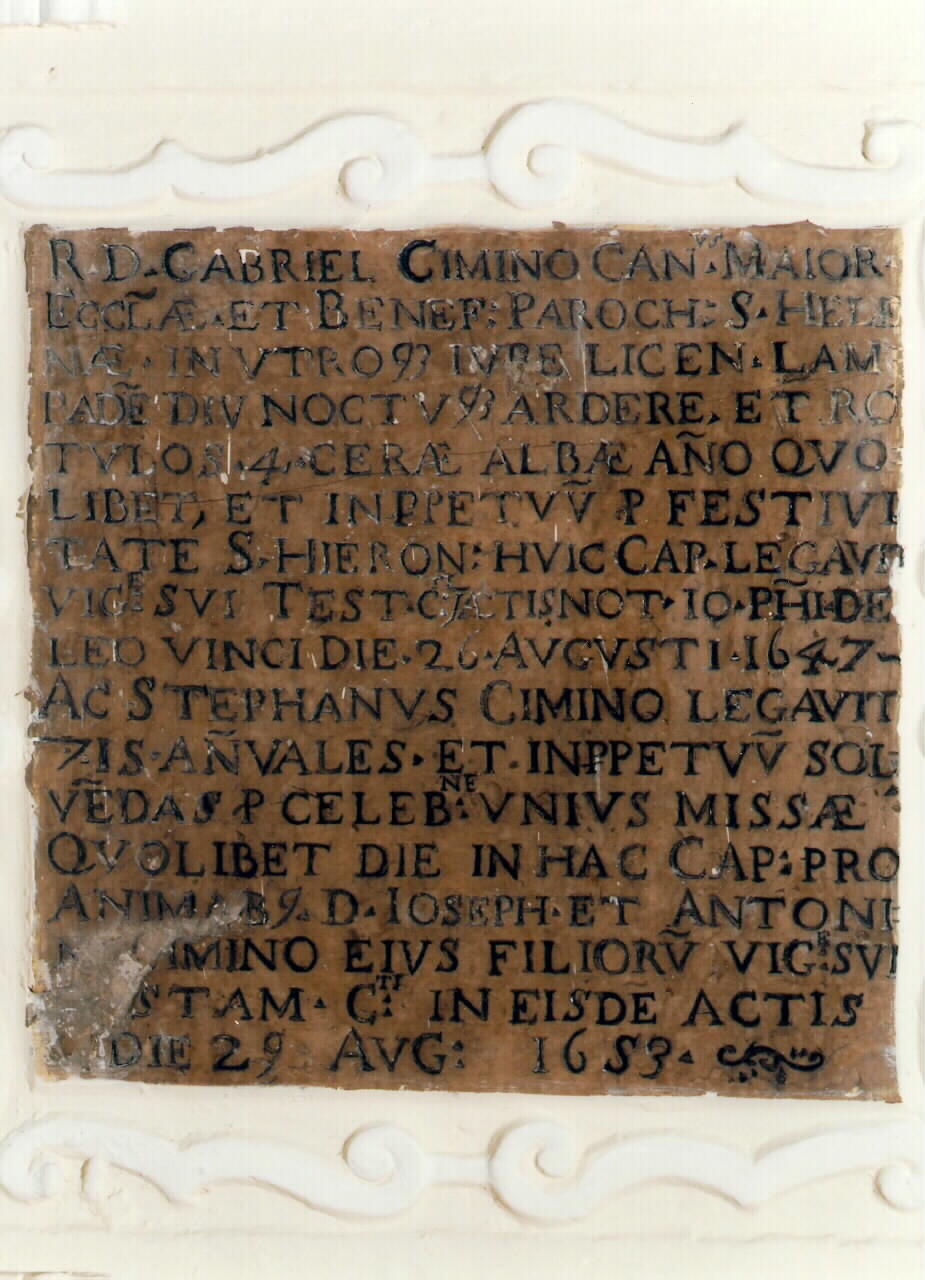 R D. GABRIEL CIMINO CAN. MAIOR
ECCL̃Æ. ET BENEF: PAROCH: S. HELE
NÆ. IN VTROQ3 IVRE LICEN. LAM
PADẼ DIV NOCTVQ3 ARDERE, ET RO
TVLOS. 4. CERÆ ALBÆ AÑO QVO
LIBET, ET INPPETVṼ P FESTIVI
TATE S. HIERON: HVIC CAP. LEGAVIT
VIG:E SVI TEST. ACTIS NOT. IO. PHĨ. DE
LEO VINCI DIE. 26. AVGVSTI. 1647
AC STEPHANVS CIMINO LEGAVIT
7. IS. AÑVALES. ET. INPPETVṼ SOL
VẼDAS P CELEB:NE VNIVS MISSÆ
QVOLIBET DIE IN HAC CAP: PRO
ANIMAB9. D. IOSEPH. ET ANTONI
IMINO EIVS FILIORṼ VIG:E SVI
STAM. C:TI IN EISDE ACTIS
DIE 29 AVG: 1653.